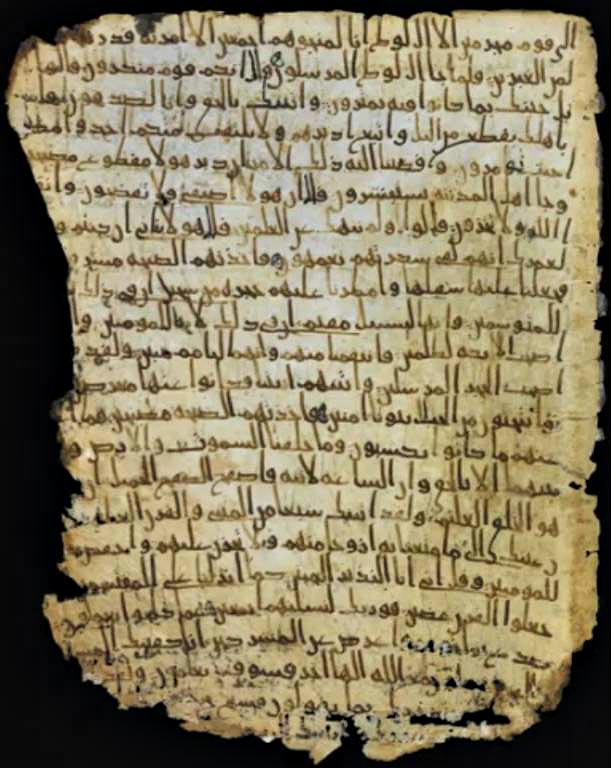 الى قوم مجرمين الا ال لوط انا لمنجوهم اجمعين الا امرته قدرنا
لمن الغبرين فلما جا ال لوط المرسلون قال انكم قوم منكرون قالوا
بل جئنك بما كانوا فيه يمترون واتينك بالحق وانا لصدقون فاسر
باهلك بقطع من اليل واتبع ادبرهم ولا يلتفت منكم احد وامضوا
حيث تومرون وقضينا اليه ذلك الامر ان دبر هولا مقطوع مصبحين
وجا اهل المدينة يستبشرون قال ان هولا ضيفي فلا تفضحون واتقوا
الله ولا تخزون قالوا اولم ننهك عن العلمين قال هولا بنتي ان كنتم
لعمرك انهم لفي سكرتهم يعمهون فاخذتهم الصيحة مشرقين
فجعلنا عليها سفلها وامطرنا عليهم حجرة من سجيل ان في ذلك
للمتوسمين وانها لبسبيل مقيم ان في ذلك لاية للمومنين وان
اصحب الايكة لظلمين فانتقمنا منهم وانهما لبامم مبين ولقد
اصحب الحجر المرسلين واتينهم ايتنا فكانوا عنها معرضين
ينحتون من الجبل بيوتا امنين فاخذتهم الصيحة مصبحين فما
عنهم ما كانوا يكسبون وما خلقنا السموت والارض و
بينهما الا بالحق وان الساعة لاتية فاصفح الصفح الجميل ان
هو الخلق العليم ولقد اتينك سبعا من المثني والقرن العظيم
عينيك الى ما متعنا به ازوجا منهم ولا تحزن عليهم واخفض
للمومنين وقل اني انا النذير المبين كما انزلنا على المقتسمين
جعلوا القرن عضين فوربك لنسلنهم اجمعين عما كانوا يعملون
واعرض عن المشركين انا كفينك
مع الله الها اخر فسوف يعلمون ولقد
بما يقولون فسبح